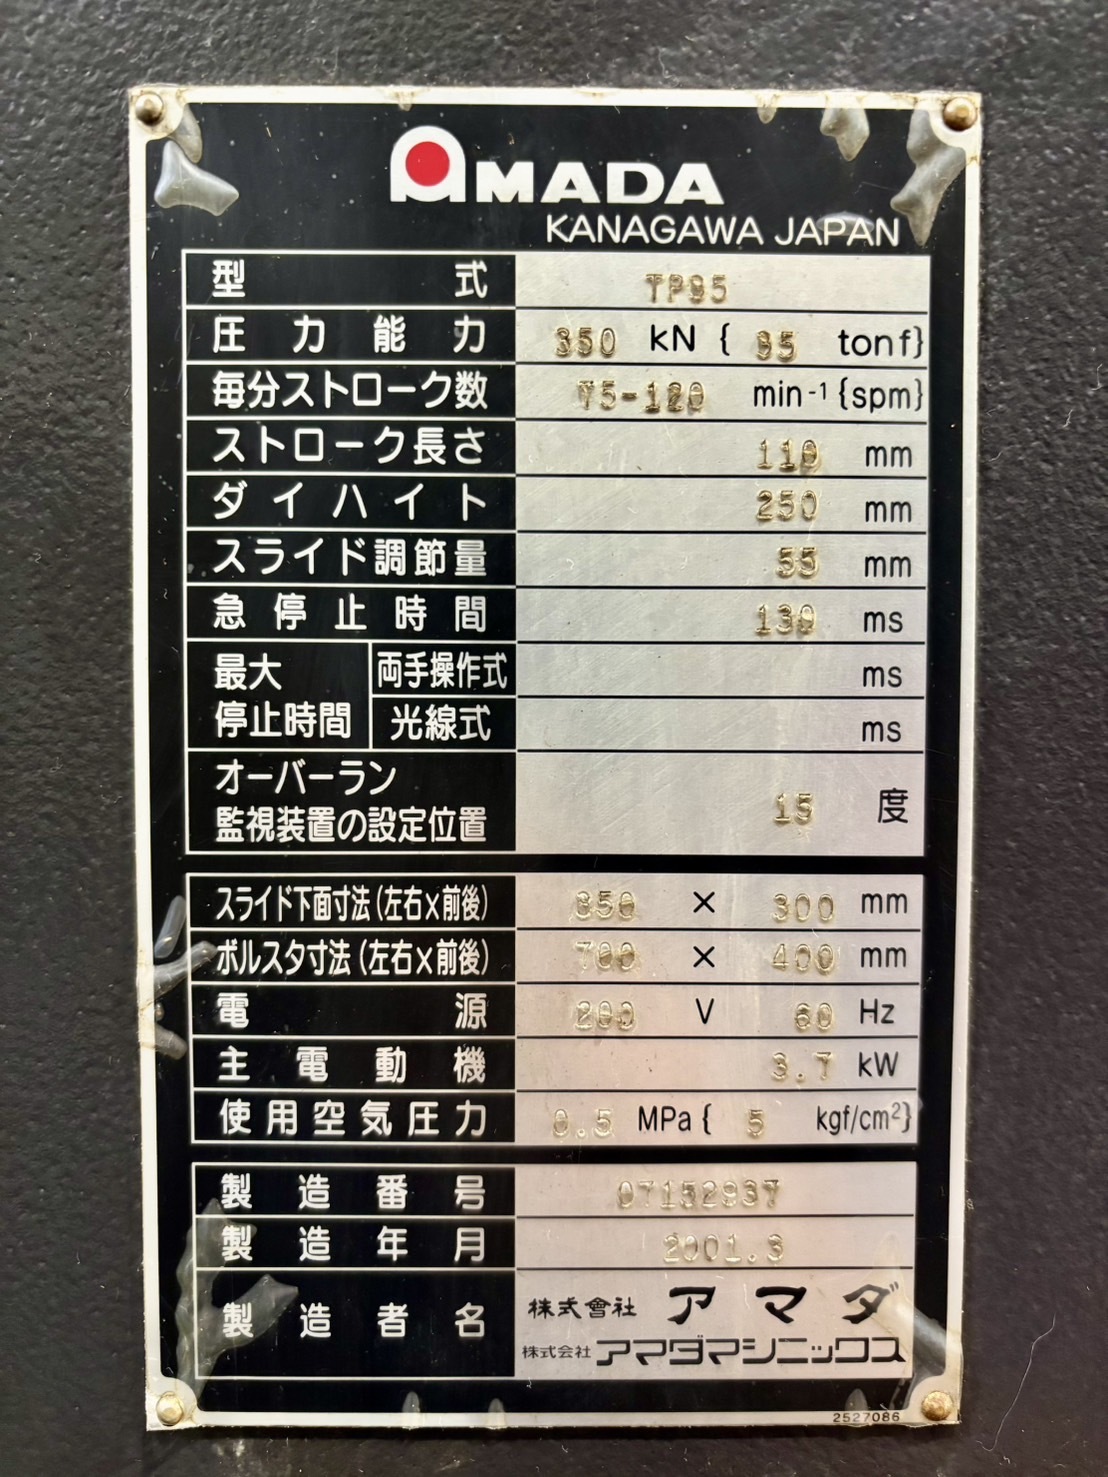 AMADA
KANAGAWA JAPAN
型式 TP35
圧力能力 350 kN { 35 tonf}
毎分ストローク数 75-120 min-1 {spm}
ストローク長さ 110 mm
ダイハイト 250 mm
スライド調節量 55 mm
急停止時間 130 ms
最大停止時間 両手操作式 ms
光線式 ms
オーバーラン
監視装置の設定位置 15 度
スライド下面寸法(左右×前後) 350 × 300 mm
ボルスタ寸法(左右×前後) 700 × 400 mm
電源 200 V 60 Hz
主電動機 3.7 kW
使用空気圧力 0.5 MPa { 5 kgf/cm²}
製造番号 07152937
製造年月 2001.3
製造者名 株式會社 アマダ
株式会社 アマダマシニックス
2527086